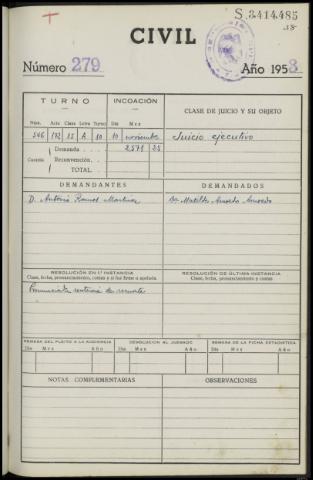 S.3414.485
CIVIL
Número 279 Año 1953
TURNO INCOACIÓN CLASE DE JUICIO Y SU OBJETO
Núm. Acto Clase Letra Turno Día Mes
546 172 15 A 10 10 noviembre Juicio ejecutivo
Demanda 2571 25
Cuantía Reconvención
TOTAL
DEMANDANTES DEMANDADOS
D. Antonio Ramos Martínez Da Matilde Acevedo Acevedo
RESOLUCIÓN EN 1.ª INSTANCIA RESOLUCIÓN DE ÚLTIMA INSTANCIA
Clase, fecha, pronunciamiento, costas y si fue firme o apelada Clase, fecha, pronunciamiento y costas
Pronunciada sentencia de remate
REMESA DEL PLEITO A LA AUDIENCIA DEVOLUCIÓN AL JUZGADO REMESA DE LA FICHA ESTADÍSTICA
Día Mes Año Día Mes Año Día Mes Año
NOTAS COMPLEMENTARIAS OBSERVACIONES